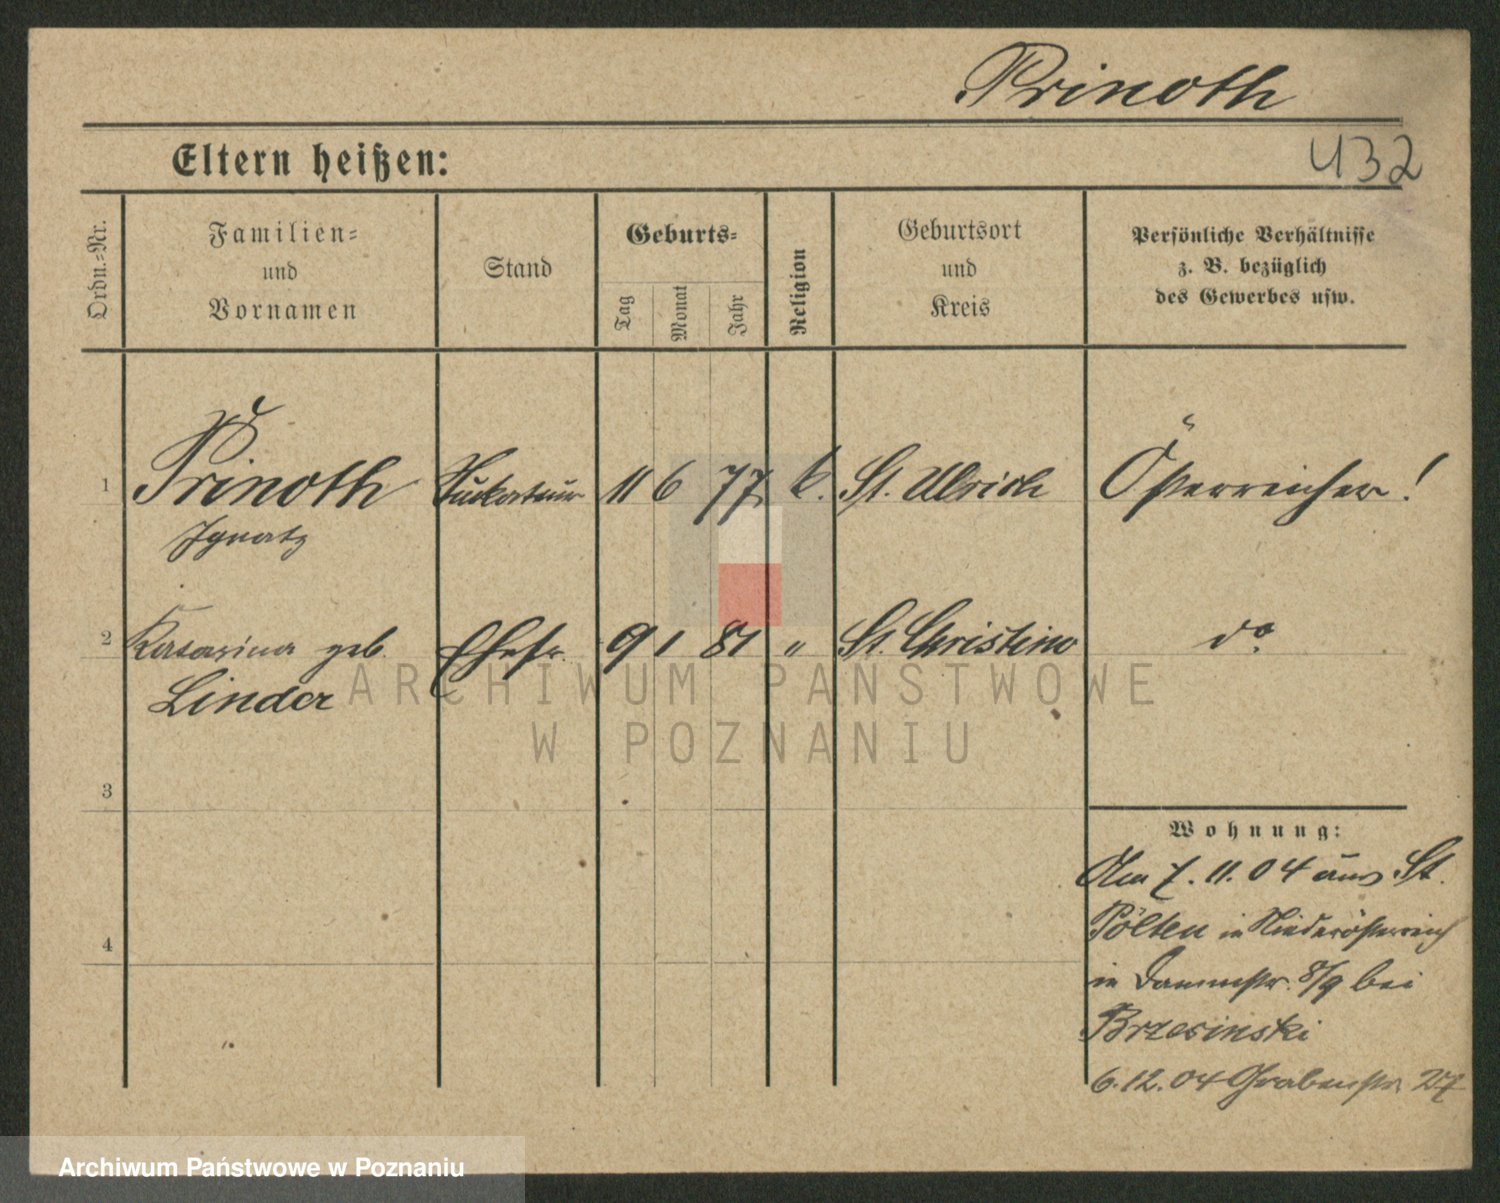 Prinoth
432
Eltern heißen:
Ordn.-Nr.
Familien-
und
Vornamen
Stand
Geburts-
Tag
Monat
Jahr
Religion
Geburtsort
und
Kreis
Persönliche Verhältnisse
z. B. bezüglich
des Gewerbes usw.
1 Prinoth 11 6 77 k. St. Ulrich Österreicher!
Ignatz
2 Katarina geb. Ehefr. 9 1 81 " St. Christina do
Linder
ARCHIWUM PAŃSTWOWE
W POZNANIU
3
4
Wohnung:
Am 7. 11. 04 aus St.
Pölten in Niederösterreich
in Dammstr. 8/9 bei
Brzesinski
6. 12. 04 Grabenstr. 27
Archiwum Państwowe w Poznaniu